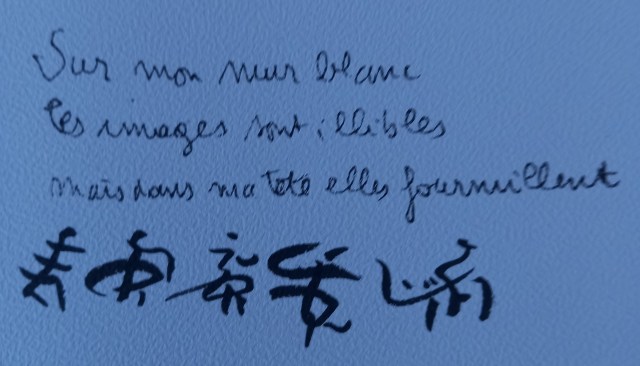 Sur mon mur blanc
les images sont illibles
mais dans ma tete elles fourmillent